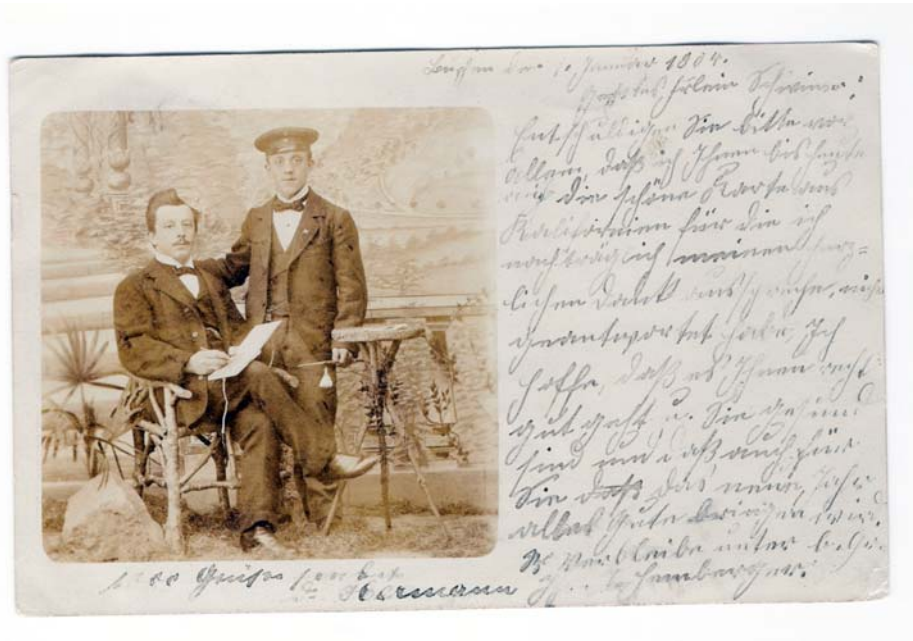 den 10. Januar 1904.
Geehrtes Frlein
Entschuldigen Sie bitte vor
allem, daß ich Ihnen bis heute
auf die schöne Karte aus
Kalifornien für die ich
nachträglich meinen herz-
lichen Dank ausspreche, nicht
geantwortet habe, Ich
hoffe, daß es Ihnen recht
gut geht u. Sie gesund
sind und daß auch für
Sie daß das neue Jahr
alles Gute bringen wird.
verbleibe unter b. Gr.
Grüße sendet
Hermann